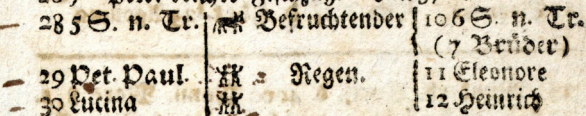 28 5 S. n. Tr. Befruchtender 10 6 S. n. Tr.
(7 Brüder)
29 Pet. Paul. Regen. 11 Eleonore
30 Lucina 12 Heinrich